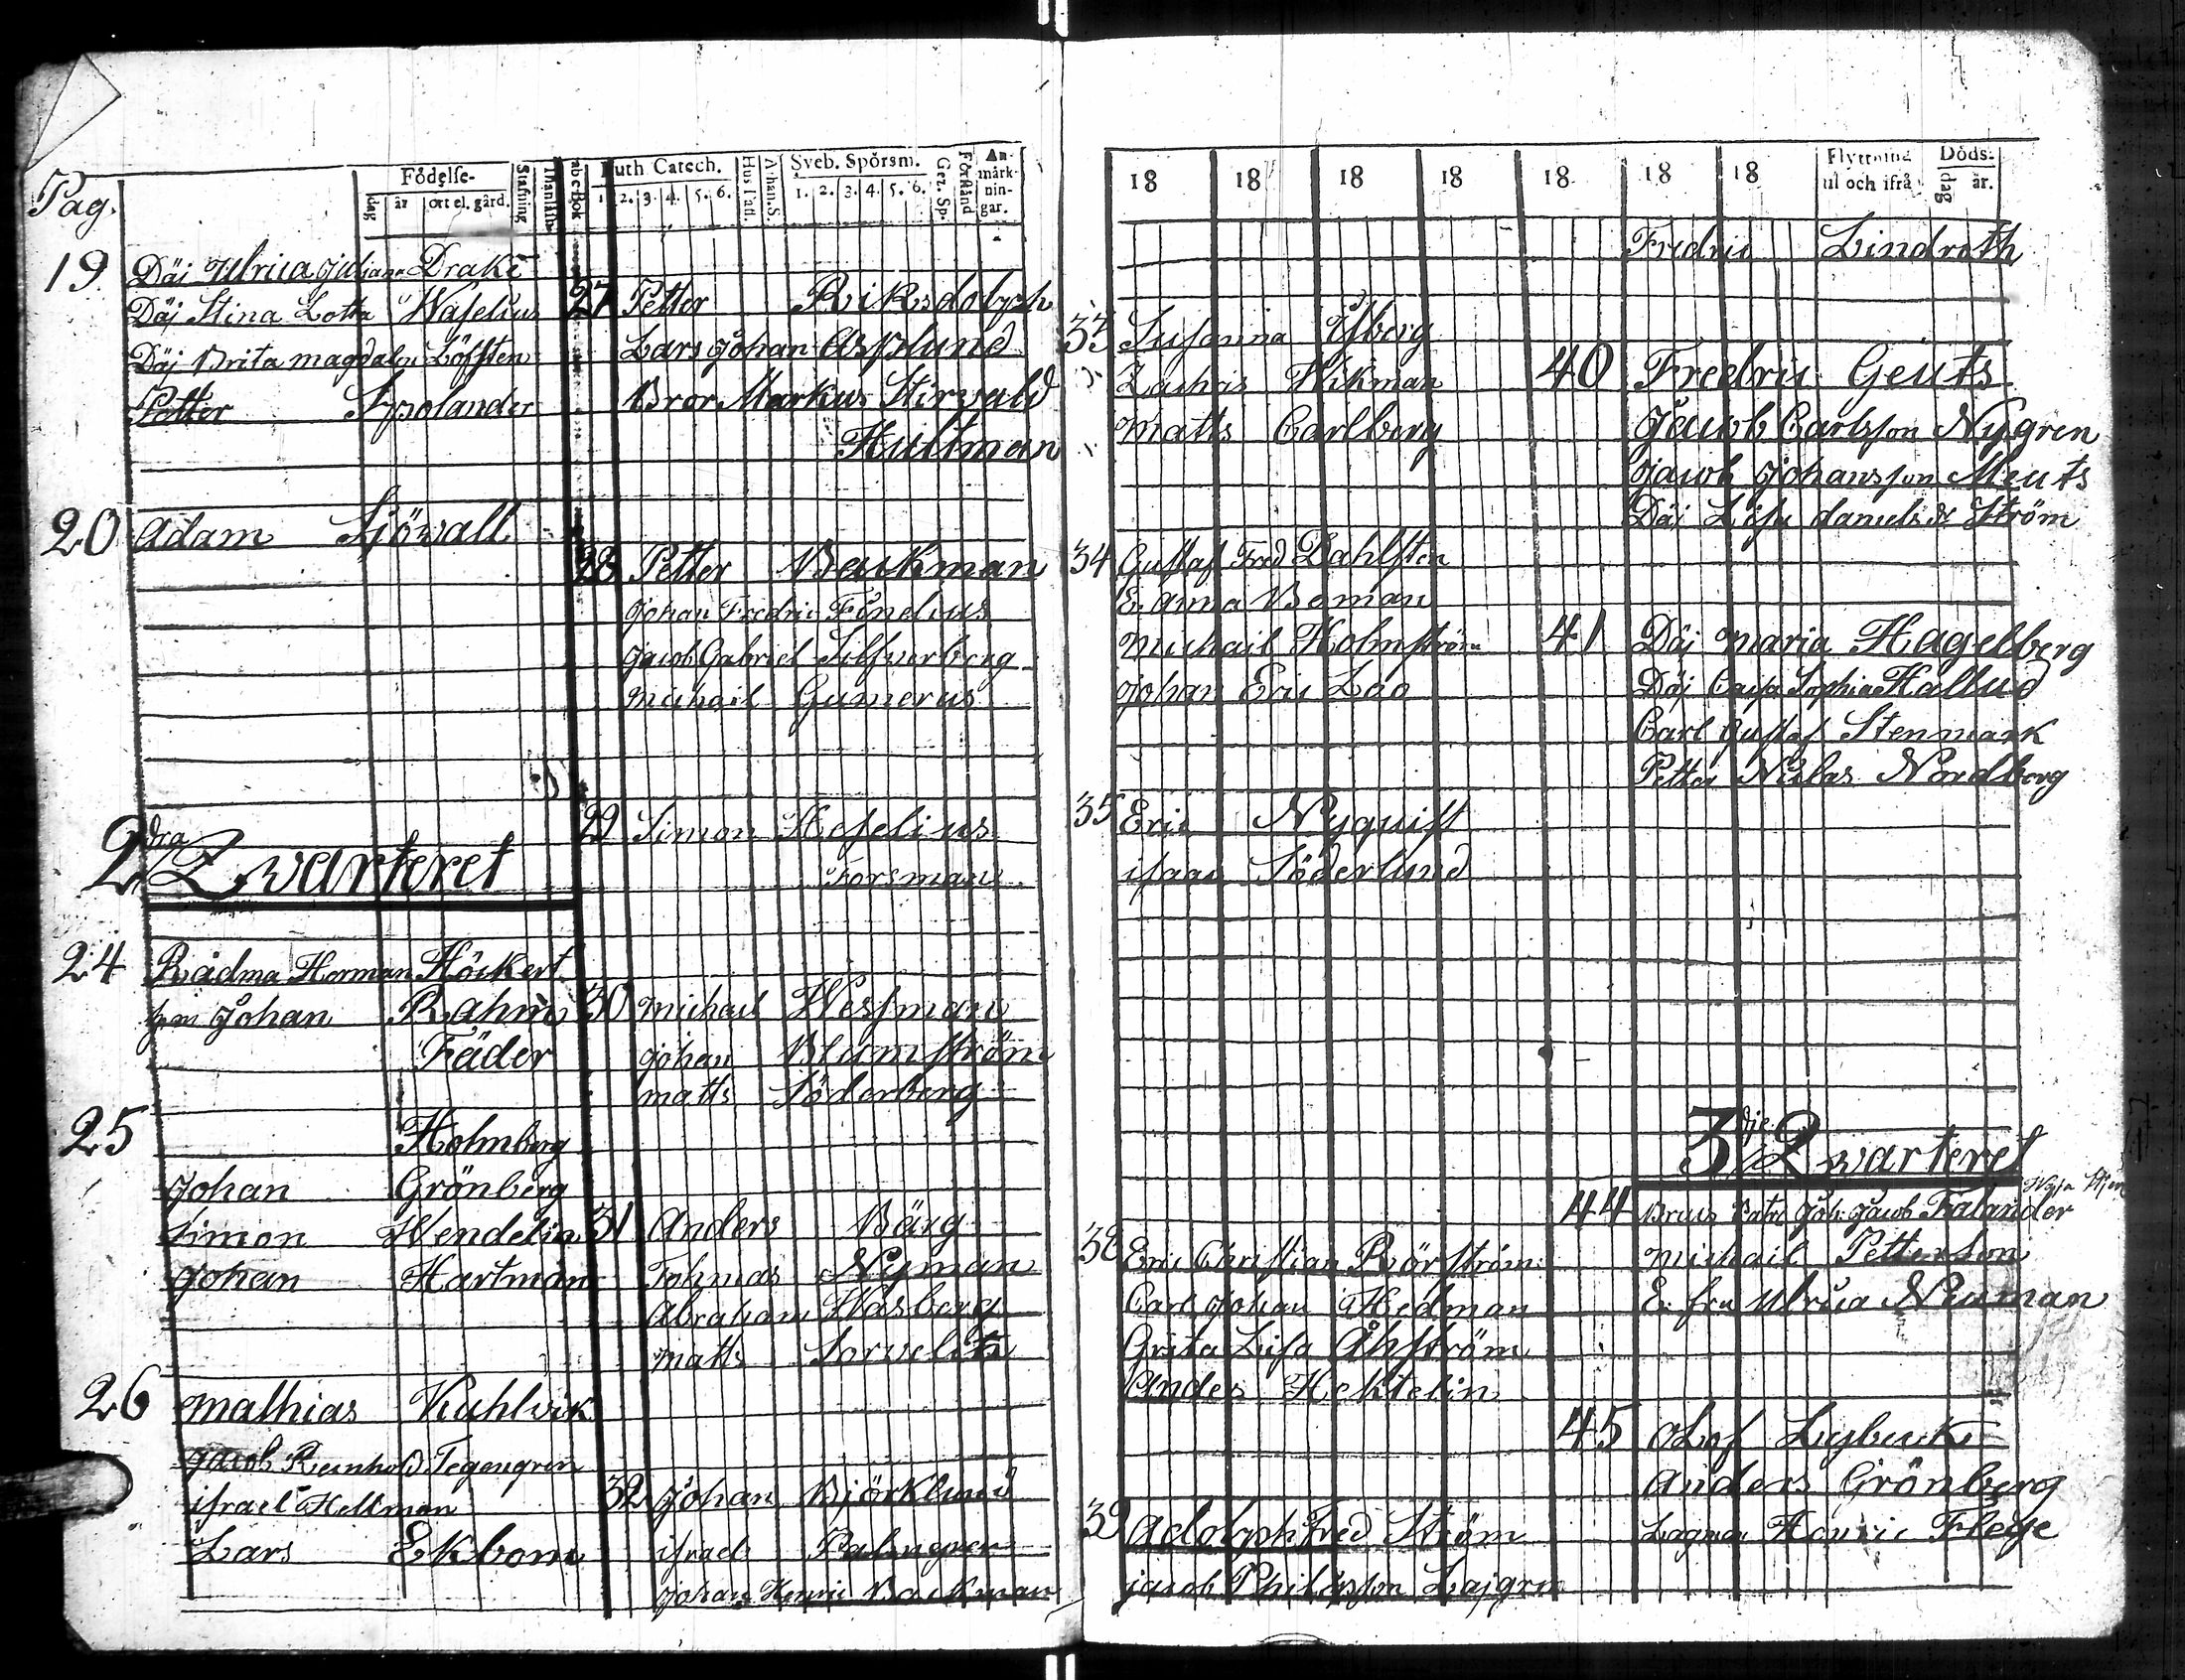 Pag.
Födelse-
dag
år
ort el. gård.
Stafning
abc Bok
Luth. Catech.
1. 2. 3. 4. 5. 6.
Hus Tafl.
Athan. S.
Sveb. Spörsm.
1. 2. 3. 4. 5. 6.
Gez. Sp.
Förstånd
An-
märk-
nin-
gar.
19 Däj Ulrica Juliana Drake
Däj Stina Lotta Waselius
Däj Brita magdalen Löfsten
Petter Spolander
20 Adam Sjöwall
2dra Qvarteret
24 Rådma Herman Höckert
Johan Rahm
Fäder
25 Holmberg
Johan Grönberg
Simon Wendelin
Johan Hartman
26 mathias Kuhlvik
Jacob Reinhold Tegengren
israel Hellman
Lars Ekbom
27 Petter Riksdolph
Lars Johan Asplund
Bror Markus Stirwald
Hultman
28 Petter Backman
Johan Fredric Finelius
Jacob Gabriel Silfverberg
Michail Gumerus
29 Simon Heselius
Forsman
30 Michail Wesman
Johan Blumström
matts Söderberg
31 Anders Bärg
Tohmas Nyman
Abraham Hasberg
matts Sorvelin
32 Johan Björklund
israel Palmgren
Johan Henric Backman
18 18 18 18 18 18 18
Flyttning
til och ifrå
Döds-
dag
år.
33 Susanna Åberg
Zachris Wikman
Matts Carlberg
34 Gustaf Fred Dahlsten
E. Anna Boman
Michail Holmström
Johan Eric Loo
35 Eric Nyquist
isaac Söderlund
38 Eric Christian Rörström
Carl Johan Hedman
Greta Lisa Åhström
Andes Hektelin
39 Adolph Fred Ström
jacob Philipsson Lajgren
Fredric Lindroth
40 Fredric Geuts
Jacob Carlsson Nygren
Jacob Johansson Meuts
Däj Lisa daniels dr Ström
41 Däj Maria Hagelberg
Däj Caisa Sophia Hallud
Carl Gustaf Stenmark
Petter Niclas Nordberg
3dje Qvarteret
44 Bruks Patr Joh: Jacob Falander
Michail Petterson
E. fru Ulrica Neuman
45 Olof Lybeck
Anders Grönberg
Lagman Henric Flege